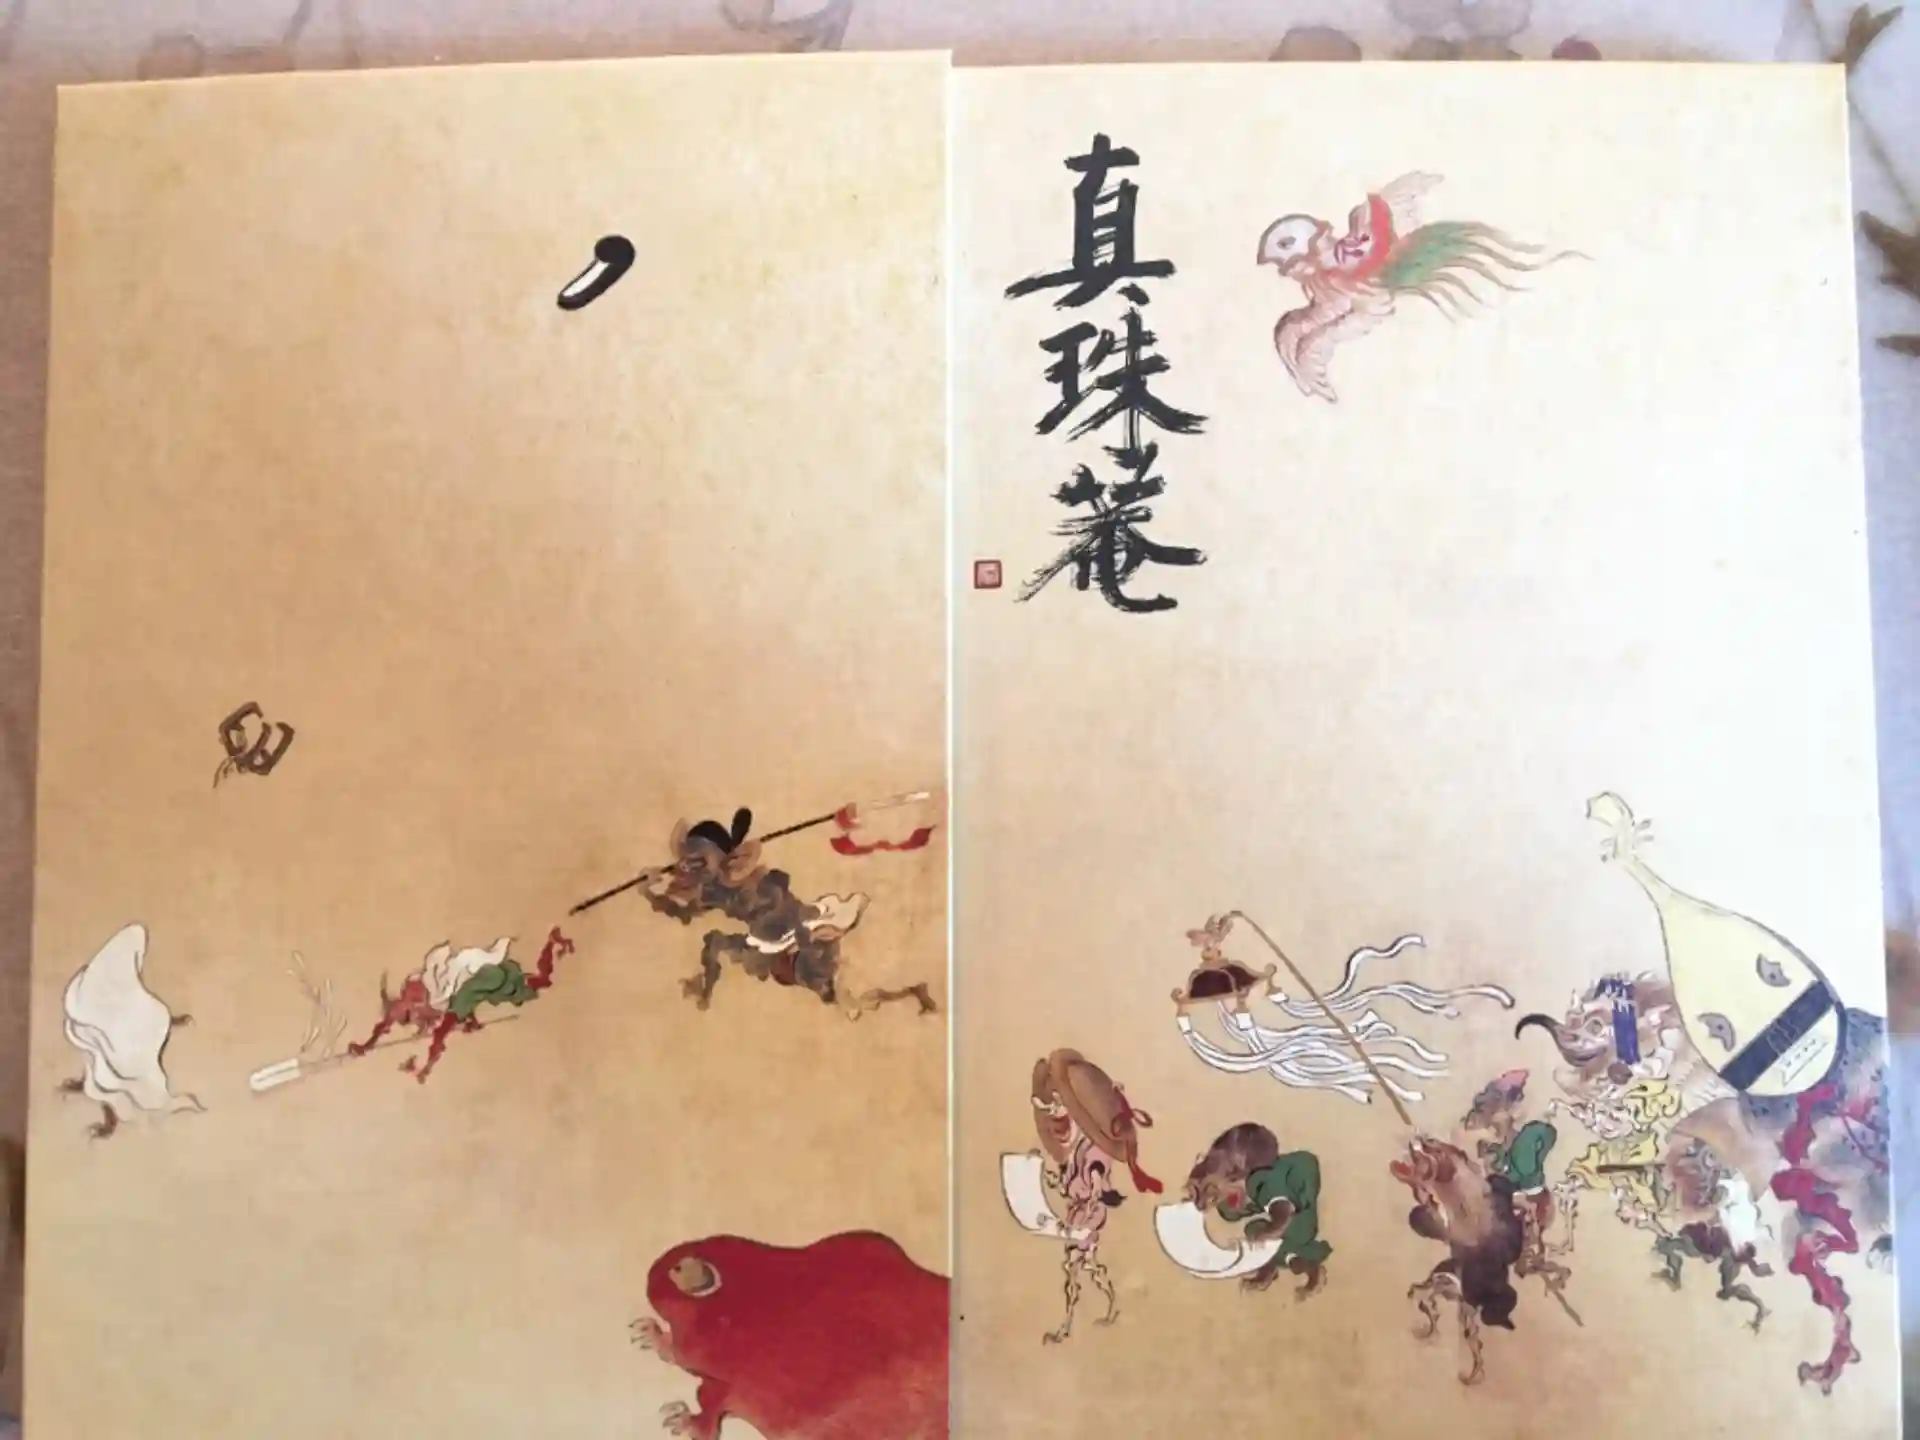 真珠菴